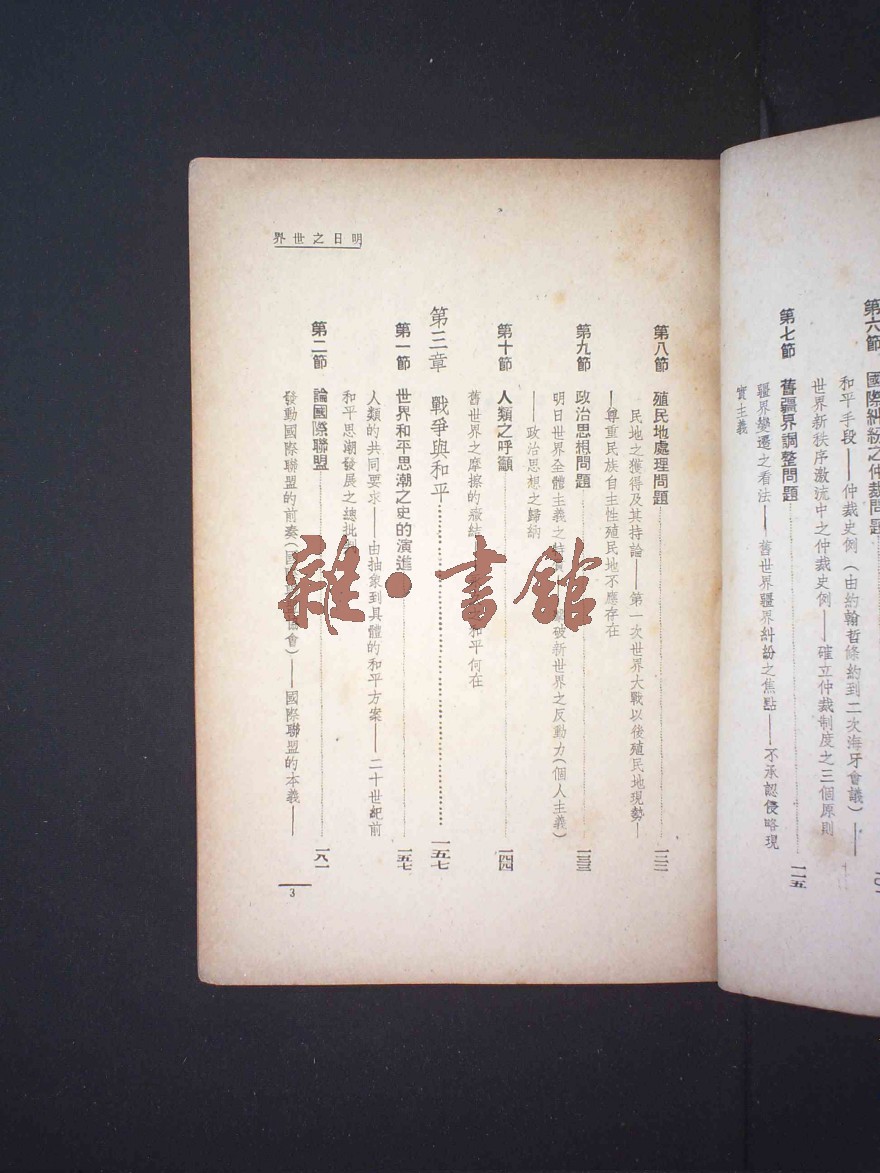 第六節 國際糾紛之仲裁問題
和平手段——仲裁史例（由約翰哲條約到二次海牙會議）——
世界新秩序激流中之仲裁史例——確立仲裁制度之三個原則
第七節 舊疆界調整問題 一一五
疆界變遷之看法——舊世界疆界糾紛之焦點——不承認侵略現
實主義
界世之日明
第八節 殖民地處理問題
民地之獲得及其持論——第一次世界大戰以後殖民地現勢—
—尊重民族自主性殖民地不應存在
第九節 政治思想問題 一三三
明日世界全體主義之 破新世界之反動力（個人主義）
——政治思想之歸納
第十節 人類之呼籲 一四四
舊世界之摩擦的癥結 和平何在
第三章 戰爭與和平 一五七
第一節 世界和平思潮之史的演進 一五七
人類的共同要求——由抽象到具體的和平方案——二十世紀前
和平思潮發展之總批
第二節 論國際聯盟 一八一
發動國際聯盟的前奏（國 會）——國際聯盟的本義——
3
雜·書館